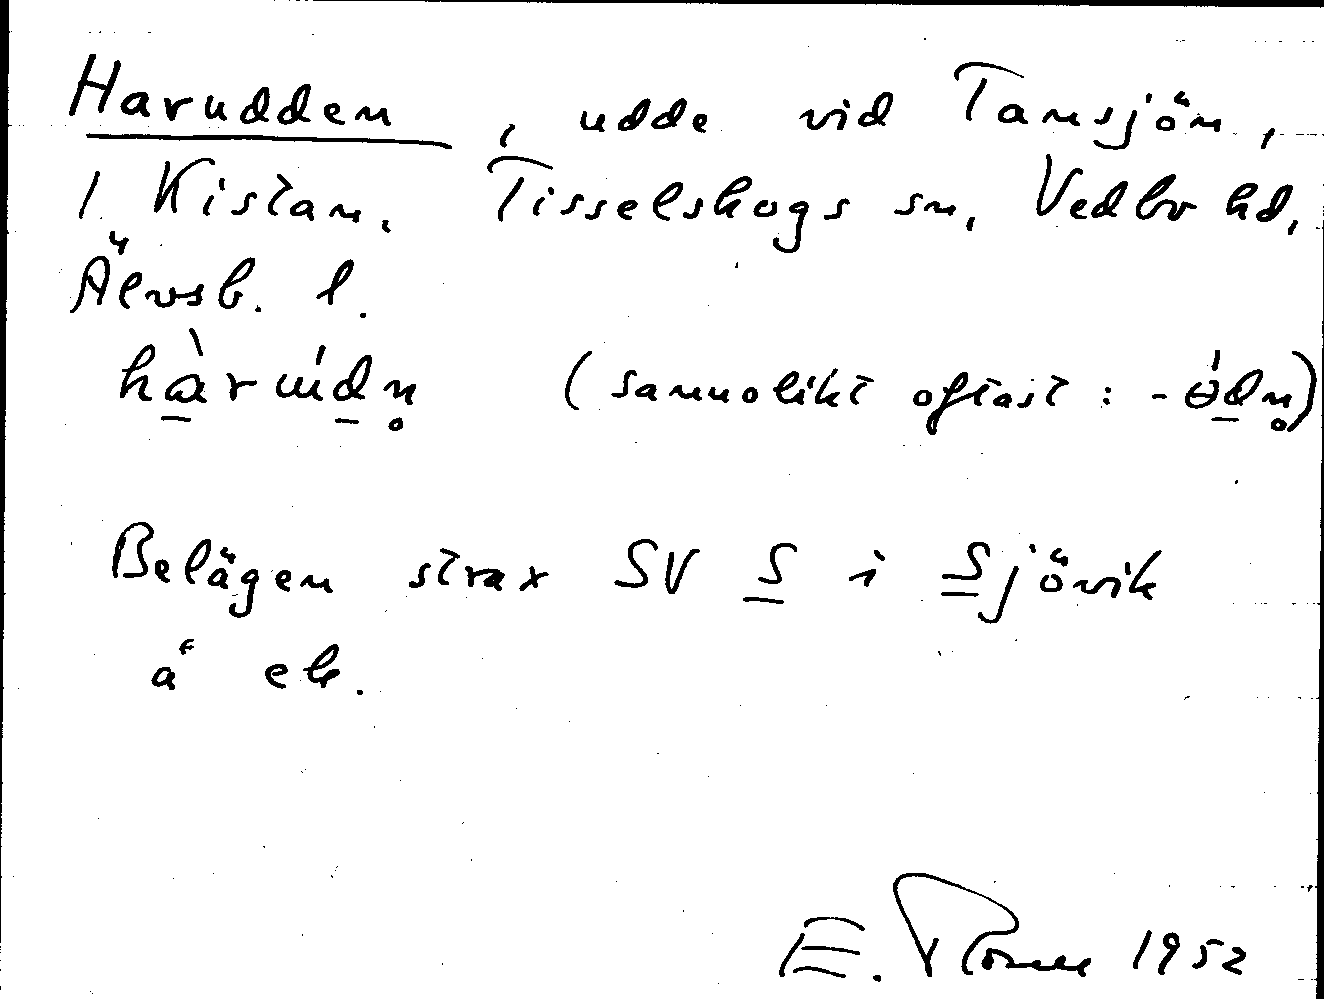 Harudden, udde vid Tansjön,
1 Kistan, Tisselskogs sn, Vedbo hd,
Älvsb. l.
hàrúdn̥ (sannolikt oftast: -ɵ́dn̥)
Belägen strax SV S i Sjövik
å ek.
E. 1952